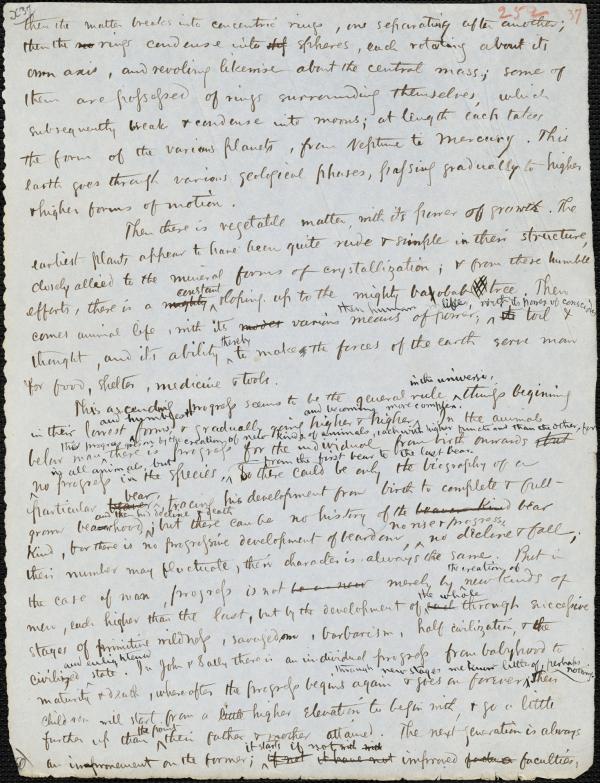 237
252 37
then the matter breaks into concentric rings, one separating after another;
then the no rings condense into spheres, each rotating about its
own axis, and revolving likewise about the central mass; some of
them are possessed of rings surrounding themselves, which
subsequently break & condense into moons; at length each takes
the form of the various planets, from Neptune to Mercury. This
earth goes through various geological phases, passing gradually to higher
& higher forms of motion.
Then there is vegetable matter, with its power of growth. The
earliest plants appear to have been quite rude & simple in their structure,
closely allied to the mineral forms of crystallization; & from these humble
constant
efforts, there is a mighty sloping up to the mighty baobab tree. Then
then human life, with its power of conscious
comes animal life, with its modes various means of power; its toil &
thereby
thought, and its ability to make the forces of the earth serve man
for food, shelter, medicine & tools.
in the universe,
This ascending progress seems to be the general rule things beginning
and humblest and becoming more complex.
in their lowest forms & gradually going higher & higher. In the animals
This progress goes on by the creation of new kinds of animals, each with higher functions than the other, for
below man, there is progress for the individual from birth onwards but
in all animals, but from the first bear to the last bear.
no progress in the species, So there could be only the biography of a
bear,
particular tracing his development from birth to complete & full-
and then his decline & death
grown bearhood, but there can be no history of the beaver kind bear
no rise & progress,
kind, for there is no progressive development of beardom, no decline & fall;
their number may fluctuate, their character is always the same. But in
the creation of
the case of man, progress is not merely by new kinds of
the whole
men, each higher than the last, but by the development of through successive
stages of primitive wildness, savagedom, barbarism, half civilization, & the
and enlightened
civilized state. In John & Sally there is an individual progress from babyhood to
through new stages we know little of, perhaps nothing.
maturity & death, where after the progress begins again & goes on forever; their
children will start from a little higher elevation to begin with, & go a little
the point
further up than their father & mother attained. The next generation is always
it starts if not with
an improvement on the former; if not it have not improved faculties,